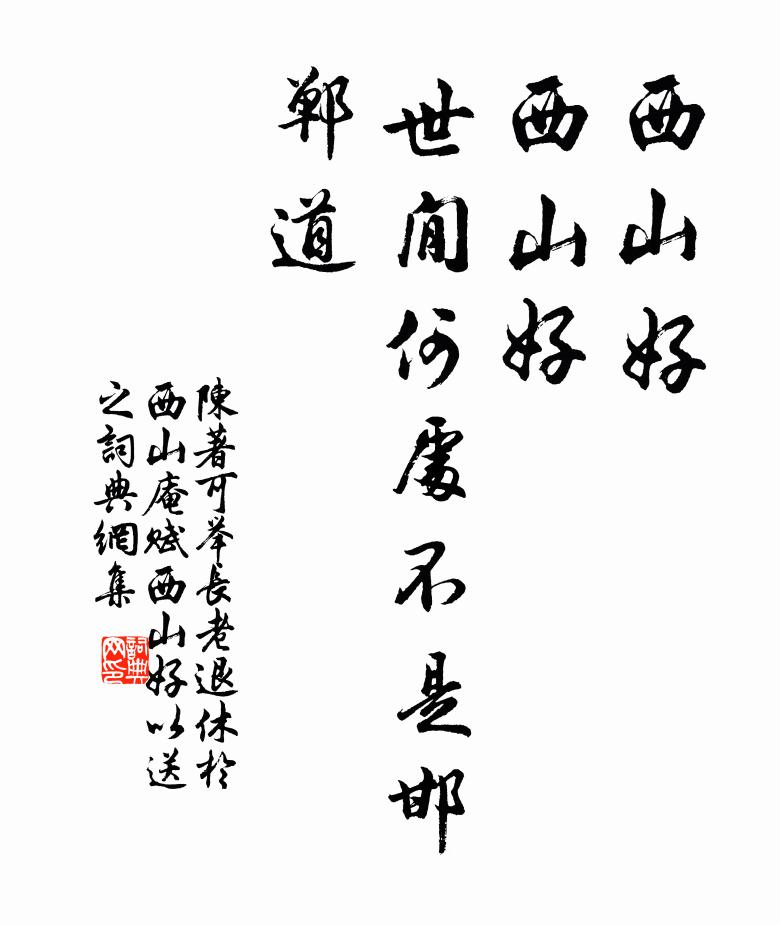 西山好
西山好
世閒何處不是邯
鄲道
陳著可举長老退休於
西山庵赋西山好以送
之詞典網集
詞典网印